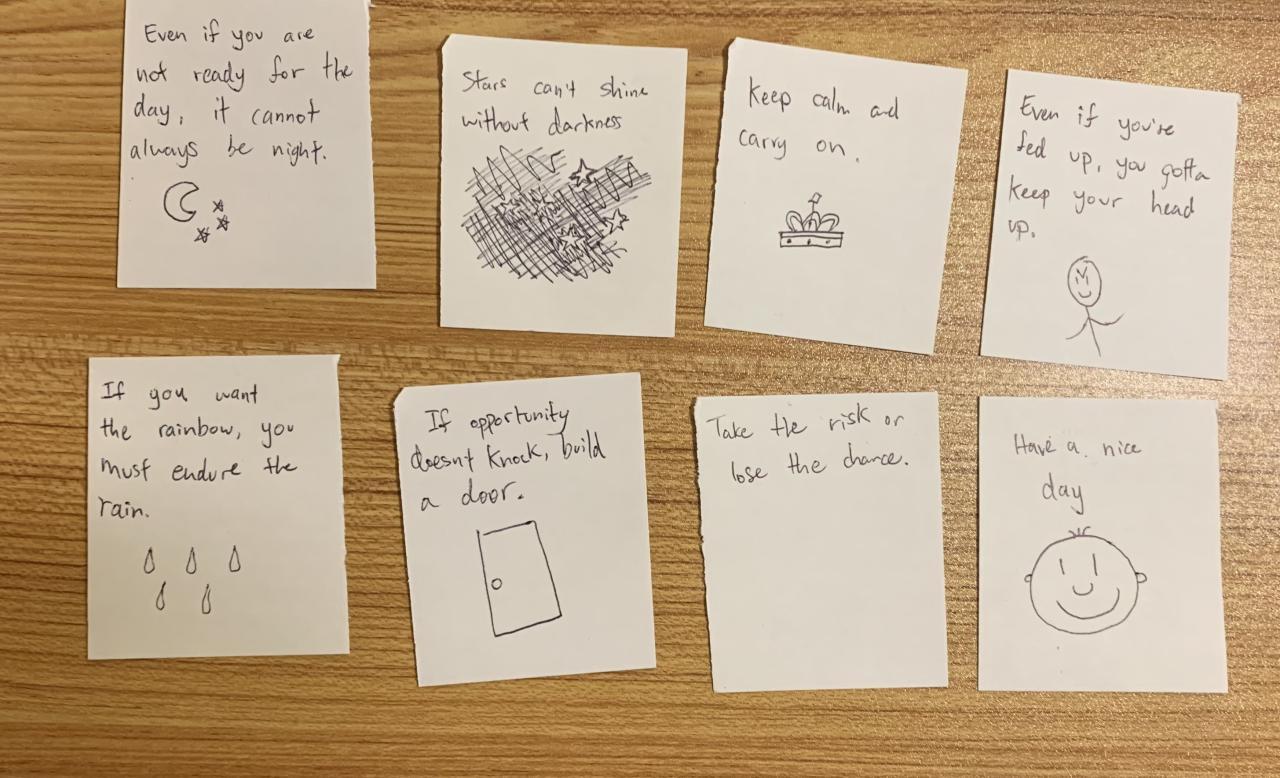 Even if you are
not ready for the
day, it cannot
always be night.
Stars can't shine
without darkness
Keep calm and
carry on.
Even if you're
fed up, you gotta
keep your head
up.
If you want
the rainbow, you
must endure the
rain.
If opportunity
doesnt knock, build
a door.
Take the risk or
lose the chance.
Have a nice
day